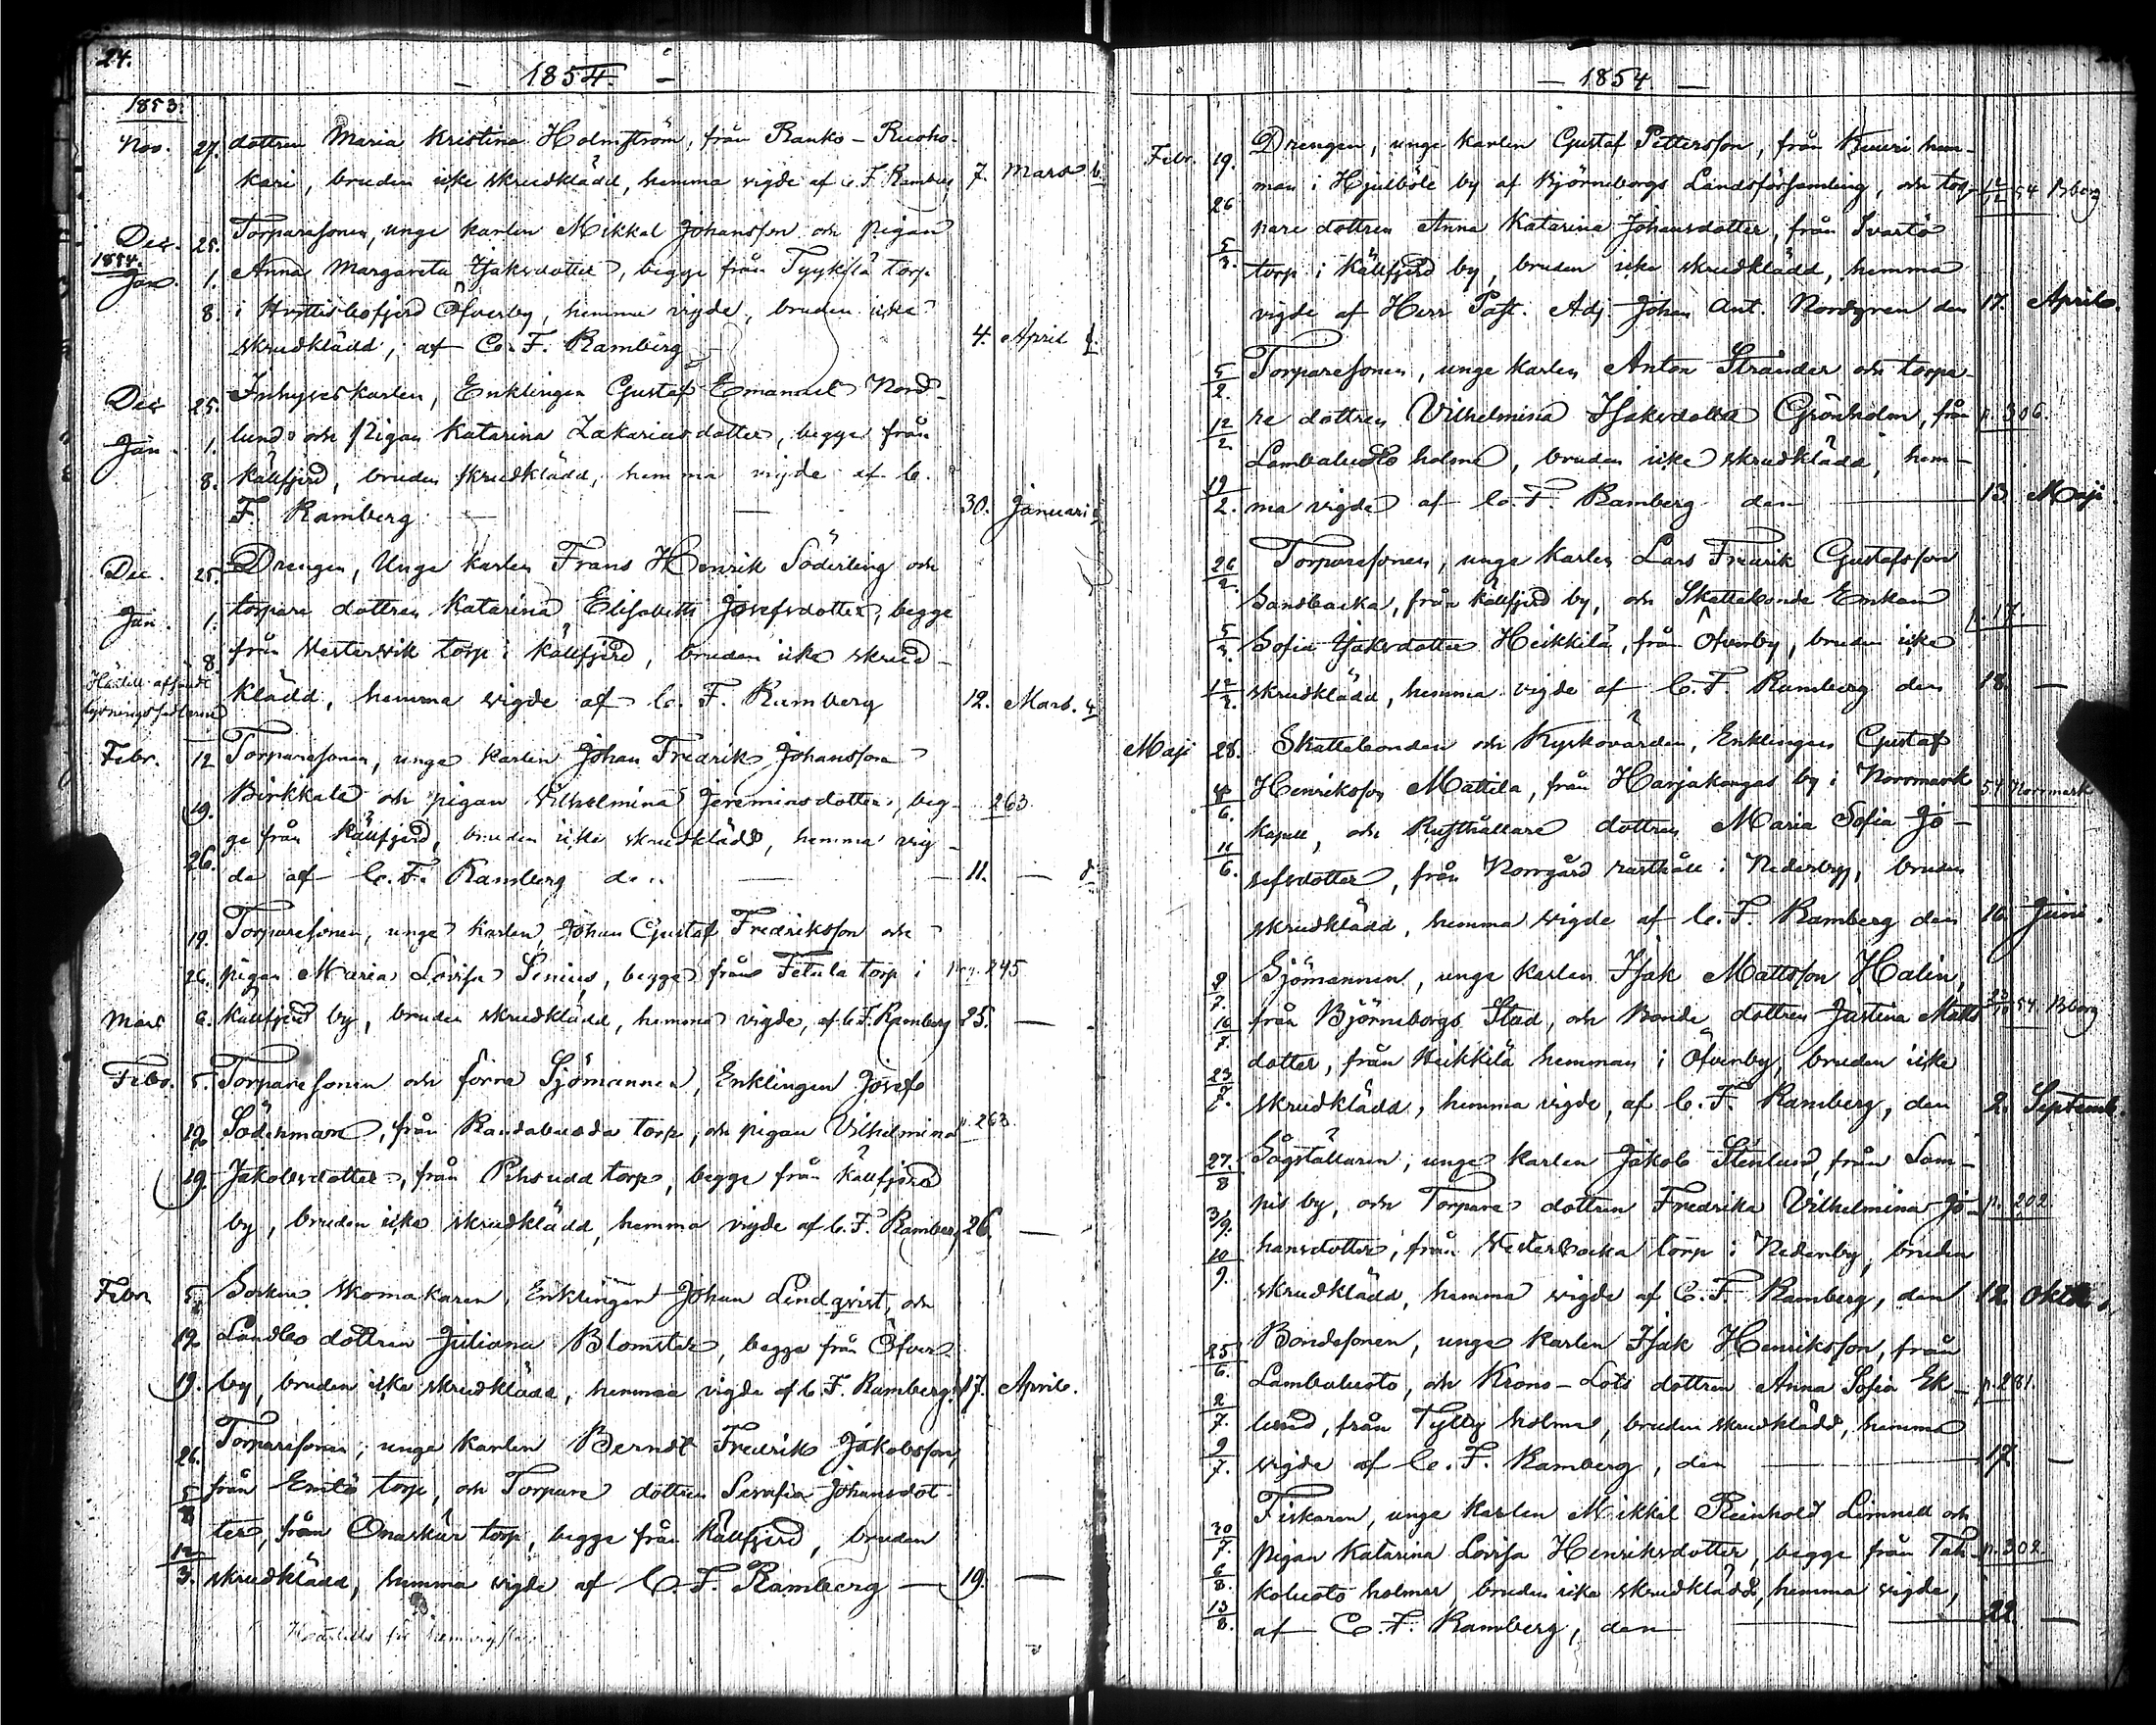 24.
— 1854. —
1853.
Nov. 27. dottren Maria Kristina Holmström, från Ranko-Ruoho-
kari, bruden icke skrudklädd, hemma vigde af C. F. Ramberg 7. Mars
Dec. 25. Torparesonen, unge karlen Mikkel Johansson och pigan
1854.
Jan. 1. Anna Margareta Isaksdotter, begge från Tyykilä torp
8. i Hvittisbofjerd Öfverby, hemma vigde, bruden icke
skrudklädd, af C. F. Ramberg 4. April
Dec. 25. Inhyseskarlen, Enklingen Gustaf Emanuel Nord-
Jan. 1. lund och Pigan Katarina Zakariasdotter, begge från
8. Källfjerd, bruden skrudklädd, hemma vigde af C.
F. Ramberg — — 30. Januari
Dec. 25. Drengen, Unge karlen Frans Henrik Söderling och
Jan. 1. torpare dottren Katarina Elisabeth Josefsdotter, begge
8 från Westervik torp i Källfjerd, bruden icke skrud-
Härtill afsändt
lysningssedlarne
klädd, hemma vigde af C. F. Ramberg 12. Mars.
Febr. 12 Torparesonen, unge karlen Johan Fredrik Johansson
19. Birkkala och pigan Vilhelmina Jeremiasdotter, beg- 263.
ge från Källfjerd, bruden icke skrudklädd, hemma vig-
26. de af C. F. Ramberg den — — 11. —
19. Torparesonen, unge karlen, Johan Gustaf Fredriksson och
26. pigan Maria Lovisa Senius, begge från Fetula torp i pag. 245
Mars 6. Källfjerd by, bruden skrudklädd, hemma vigde, af C. F. Ramberg 25. —
Febr. 5. Torparesonen och förre Sjömannen, Enklingen Josef
12 Söderman, från Randabuoda torp, och pigan Vilhelmina p. 263
19. Jakobsdotter, från Pihsudd torp, begge från Källfjerd
by, bruden icke skrudklädd, hemma vigde af C. F. Ramberg 26. —
Febr. 5. Socken skomakaren, Enklingen Johan Lindqvist, och
12 Landbo dottren Juliana Blomster, begge från Öfver-
19. by, bruden icke skrudklädd, hemma vigde af C. F. Ramberg. 17. April.
26. Torparesonen, unge karlen Berndt Fredrik Jakobsson,
5/3 från Emtö torp, och Torpare dottren Serafia Johansdot-
ter, från Onaskär torp, begge från Källfjerd, bruden
12/3. skrudklädd, hemma vigde af C. F. Ramberg — 19. —
— 1854. —
Febr. 19. Drengen, unge karlen Gustaf Pettersson, från Kuuri hem-
26 man i Hjulböle by af Björneborgs Landsförsamling, och tor- 54 Bborg
5/3. pare dottren Anna Katarina Johansdotter, från Svartö
torp i Källfjerd by, bruden icke skrudklädd, hemma
vigde af Herr Past. Adj Johan Ant. Nordgren den 17. April.
5/2. Torparesonen, unge karlen Anton Strander och torpa-
12/2 re dottren Vilhelmina Isaksdotter Grönholm, från p. 306.
Lambaluoto holme, bruden icke skrudklädd, hem-
19/2. ma vigde af C. F. Ramberg den — 13. Maji
26/2. Torparesonen, unge karlen Lars Fredrik Gustafsson
Sandbacka, från Källfjerd by, och Skattebonde Enkan p. 17.
5/3. Sofia Isaksdotter Heikkilä, från Öfverby, bruden icke
12/3. skrudklädd, hemma vigde af C. F. Ramberg den 18. —
Maji 28. Skattebonden och Kyrkovärden, Enklingen Gustaf
4/6. Henriksson Mattila, från Harjakangas by i Norrmark 54 Norrmark
11/6. kapell, och Rusthållare dottren Maria Sofia Jo-
sefsdotter, från Norrgård rusthåll i Nederby, bruden
skrudklädd, hemma vigde af C. F. Ramberg den 16. Juni.
9/7. Sjömannen, unge karlen Isak Mattsson Halin,
16/7. från Björneborgs Stad, och Bonde dottren Justina Matts 54 Bborg
23/7. dotter, från Heikkilä hemman i Öfverby, bruden icke
skrudklädd, hemma vigde, af C. F. Ramberg, den 2. Septemb.
27./8 Sågställaren, unge karlen Jakob Stenlund, från Läm-
3/9. pis by, och Torpare dottren Fredrika Vilhelmina Jo- p. 202.
10/9. hansdotter, från Westerbacka torp i Nederby, bruden
skrudklädd, hemma vigde af C. F. Ramberg, den 12. Oktob.
25/6. Bondesonen, unge karlen Isak Henriksson, från
2/7. Lambaluoto, och Krono-Lots dottren Anna Sofia Ek- p. 281.
9/7. lund, från Tylty holme, bruden skrudklädd, hemma
vigde af C. F. Ramberg, den — 17. —
30/7. Fiskaren, unge karlen Mikkel Reinhold Limnell och
6/8. pigan Katarina Lovisa Henriksdotter, begge från Tah- p. 302.
13/8. koluoto holmar, bruden icke skrudklädd, hemma vigde,
af C. F. Ramberg, den — 22. —